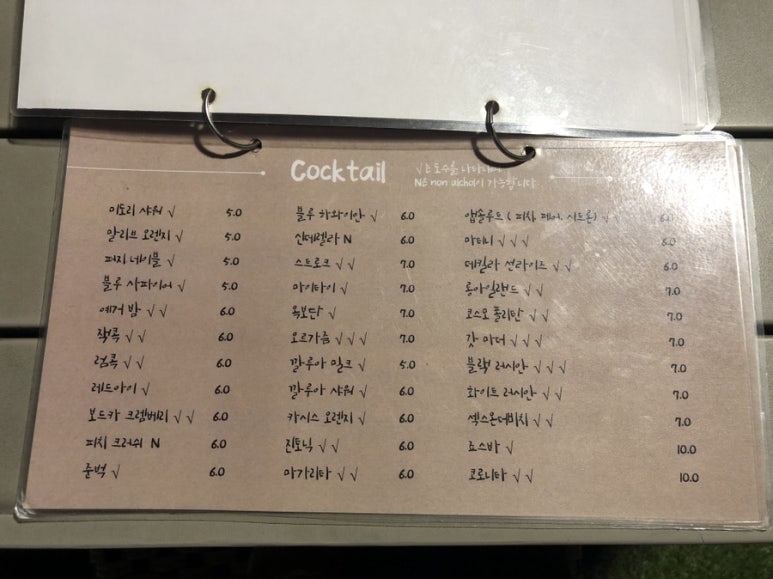 Cocktail
√는 도수를 나타내며
N은 non alchol이 가능합니다
미도리 샤워 √ 5.0
말리브 오렌지 √ 5.0
퍼지 네이블 √ 5.0
블루 사파이어 √ 5.0
예거 밤 √ √ 6.0
잭콕 √ √ 6.0
럼콕 √ √ 6.0
레드아이 √ 6.0
보드카 크랜베리 √ √ 6.0
피치 크러쉬 N 6.0
준벅 √ 6.0
블루 하와이안 √ 6.0
신데렐라 N 6.0
스트로크 √ √ 7.0
마이타이 √ 7.0
욕보단 √ 7.0
오르가즘 √ √ √ 7.0
깔루아 밀크 √ 5.0
깔루아 샤워 √ 6.0
카시스 오렌지 √ 6.0
진토닉 √ √ 6.0
마가리타 √ √ 6.0
앱솔루트 ( 피치, 페어, 시트론) √ 6.0
마티니 √ √ √ 6.0
데킬라 선라이즈 √ √ 6.0
롱아일랜드 √ √ 7.0
코스모 폴리탄 √ √ 7.0
갓 마더 √ √ √ 7.0
블랙 러시안 √ √ √ 7.0
화이트 러시안 √ √ 7.0
섹스온더비치 √ √ 7.0
죠스바 √ 10.0
코로니타 √ √ 10.0